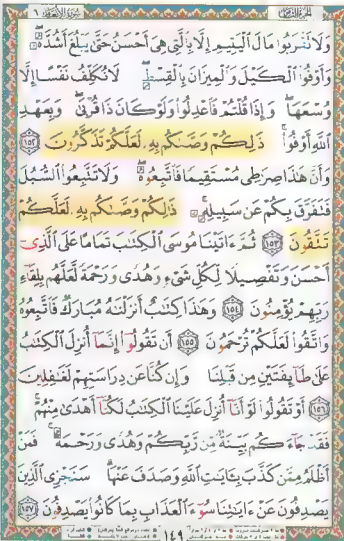 سورة الأنعام ٦
الجزء الثامن
وَلَا تَقْرَبُوا۟ مَالَ ٱلْيَتِيمِ إِلَّا بِٱلَّتِى هِىَ أَحْسَنُ حَتَّىٰ يَبْلُغَ أَشُدَّهُۥ
وَأَوْفُوا۟ ٱلْكَيْلَ وَٱلْمِيزَانَ بِٱلْقِسْطِ لَا نُكَلِّفُ نَفْسًا إِلَّا
وُسْعَهَا وَإِذَا قُلْتُمْ فَٱعْدِلُوا۟ وَلَوْ كَانَ ذَا قُرْبَىٰ وَبِعَهْدِ
ٱللَّهِ أَوْفُوا۟ ذَٰلِكُمْ وَصَّىٰكُم بِهِۦ لَعَلَّكُمْ تَذَكَّرُونَ ١٥٢
وَأَنَّ هَٰذَا صِرَٰطِى مُسْتَقِيمًا فَٱتَّبِعُوهُ وَلَا تَتَّبِعُوا۟ ٱلسُّبُلَ
فَتَفَرَّقَ بِكُمْ عَن سَبِيلِهِۦ ذَٰلِكُمْ وَصَّىٰكُم بِهِۦ لَعَلَّكُمْ
تَتَّقُونَ ١٥٣ ثُمَّ ءَاتَيْنَا مُوسَى ٱلْكِتَٰبَ تَمَامًا عَلَى ٱلَّذِىٓ
أَحْسَنَ وَتَفْصِيلًا لِّكُلِّ شَىْءٍ وَهُدًى وَرَحْمَةً لَّعَلَّهُم بِلِقَآءِ
رَبِّهِمْ يُؤْمِنُونَ ١٥٤ وَهَٰذَا كِتَٰبٌ أَنزَلْنَٰهُ مُبَارَكٌ فَٱتَّبِعُوهُ
وَٱتَّقُوا۟ لَعَلَّكُمْ تُرْحَمُونَ ١٥٥ أَن تَقُولُوٓا۟ إِنَّمَآ أُنزِلَ ٱلْكِتَٰبُ
عَلَىٰ طَآئِفَتَيْنِ مِن قَبْلِنَا وَإِن كُنَّا عَن دِرَاسَتِهِمْ لَغَٰفِلِينَ
١٥٦ أَوْ تَقُولُوا۟ لَوْ أَنَّآ أُنزِلَ عَلَيْنَا ٱلْكِتَٰبُ لَكُنَّآ أَهْدَىٰ مِنْهُمْ
فَقَدْ جَآءَكُم بَيِّنَةٌ مِّن رَّبِّكُمْ وَهُدًى وَرَحْمَةٌ فَمَنْ
أَظْلَمُ مِمَّن كَذَّبَ بِـَٔايَٰتِ ٱللَّهِ وَصَدَفَ عَنْهَا سَنَجْزِى ٱلَّذِينَ
يَصْدِفُونَ عَنْ ءَايَٰتِنَا سُوٓءَ ٱلْعَذَابِ بِمَا كَانُوا۟ يَصْدِفُونَ ١٥٧
١٤٩